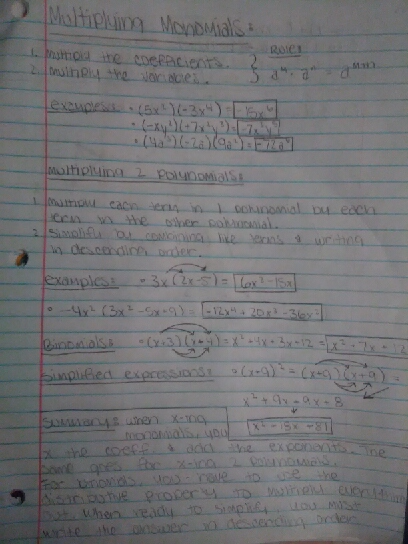 Multiplying Monomials:
1. multiply the coefficients. } Rule:
2. multiply the variables. aᵐ · aⁿ = aᵐ⁺ⁿ
examples: • (5x²)(-3x⁴) = -15x⁶
multiplying 2 polynomials:
1. multiply each term in 1 polynomial by each
term in the other polynomial.
2. Simplify by combining like terms & writing
in descending order.
examples: • 3x(2x-5) = 6x²-15x
• -4x² (3x² -5x+9) = -12x⁴ + 20x³ -36x²
Binomials: • (x+3)(x+4) = x² +4x+3x+12 = x² +7x+12
Simplified expressions: • (x+9)² = (x+9)(x+9) =
x² +9x+9x+8
Summary: when x-ing
monomials, you
x the coeff & add the exponents. The
same goes for x-ing 2 polynomials.
For binomials, you have to use the
distributive property to multiply everything
but when ready to simplify, you must
write the answer in descending order